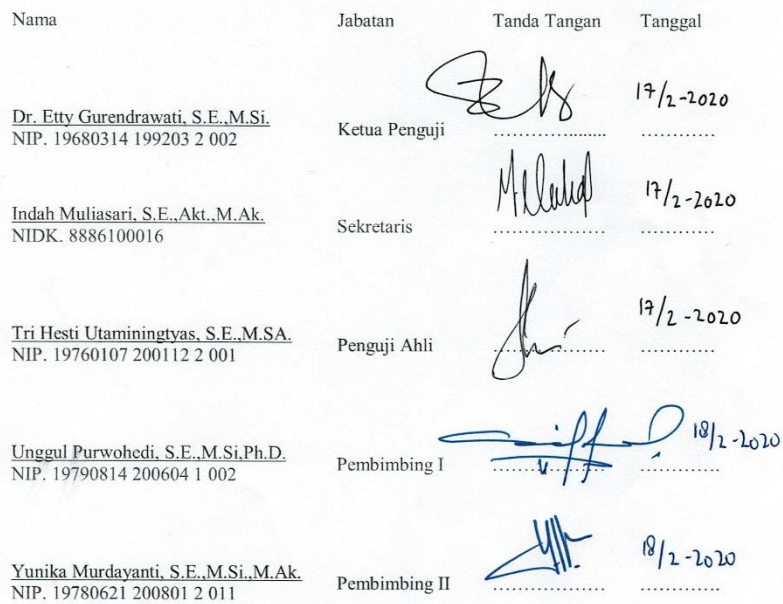 Nama Jabatan Tanda Tangan Tanggal
17/2-2020
Dr. Etty Gurendrawati, S.E.,M.Si.
NIP. 19680314 199203 2 002
Ketua Penguji .................... ............
17/2-2020
Indah Muliasari, S.E.,Akt.,M.Ak.
NIDK. 8886100016
Sekretaris .................... ............
17/2-2020
Tri Hesti Utaminingtyas, S.E.,M.SA.
NIP. 19760107 200112 2 001
Penguji Ahli .................... ............
18/2-2020
Unggul Purwohedi, S.E.,M.Si,Ph.D.
NIP. 19790814 200604 1 002
Pembimbing I .................... ............
18/2-2020
Yunika Murdayanti, S.E.,M.Si.,M.Ak.
NIP. 19780621 200801 2 011
Pembimbing II .................... ............